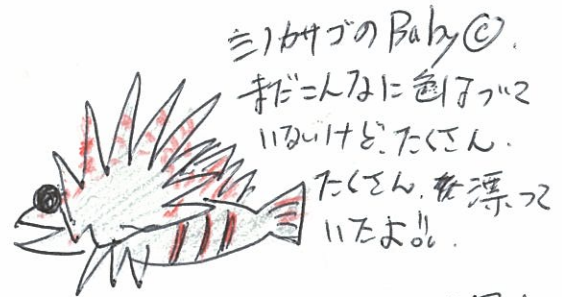 ミノカサゴのBaby©.
まだこんなに色はついて
いないけど、たくさん.
たくさん、漂って
いたよ!!